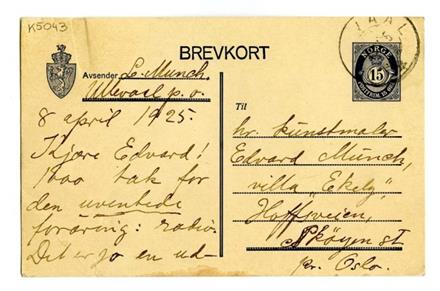 K5043
BREVKORT
Avsender L. Munch,
Ullevaal p.o.
8 april 1925.
Kjære Edvard!
1000 tak for
den uventede
foræring: radio.
Det er jo en ud-
NORGE
15
Til
hr. kunstmaler
Edvard Munch,
villa "Ekely"
Hoffsveien,
Skøyen st
pr. Oslo.